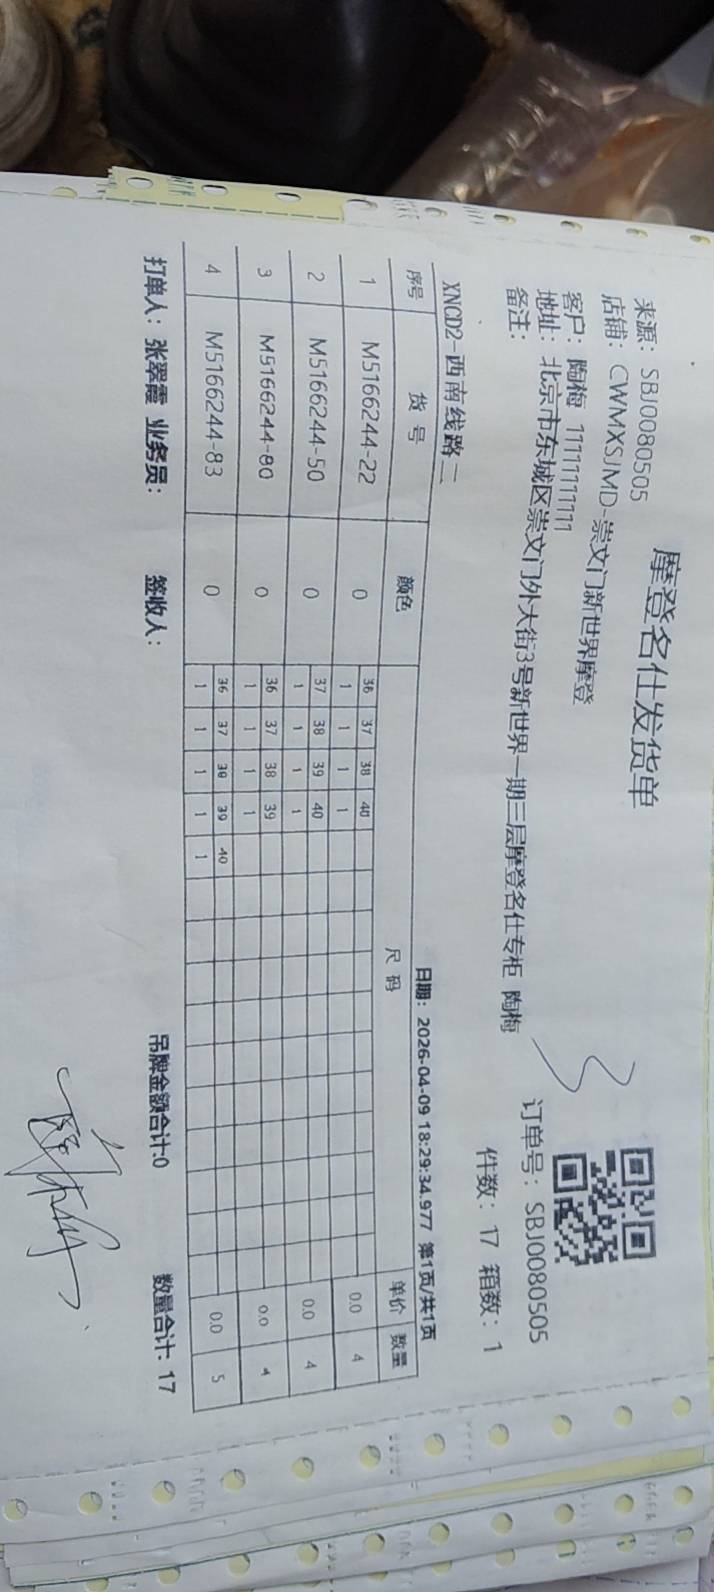 摩登名仕发货单
来源：SBJ0080505
店铺：CWMXSJMD-崇文门新世界摩登
客户：陶梅 11111111111
订单号：SBJ0080505
地址：北京市东城区崇文门外大街3号新世界一期三层摩登名仕专柜 陶梅
备注：
件数：17 箱数：1
XNCD2-西南线路二
日期：2026-04-09 18:29:34.977 第1页/共1页
序号 货号 颜色 尺码 单价 数量
1 M5166244-22 0 36 37 38 40 0.0 4
1 1 1 1
2 M5166244-50 0 37 38 39 40 0.0 4
1 1 1 1
3 M5166244-80 0 36 37 38 39 0.0 4
1 1 1 1
4 M5166244-83 0 36 37 38 39 40 0.0 5
1 1 1 1 1
打单人：张翠霞 业务员： 签收人： 吊牌金额合计:0 数量合计：17